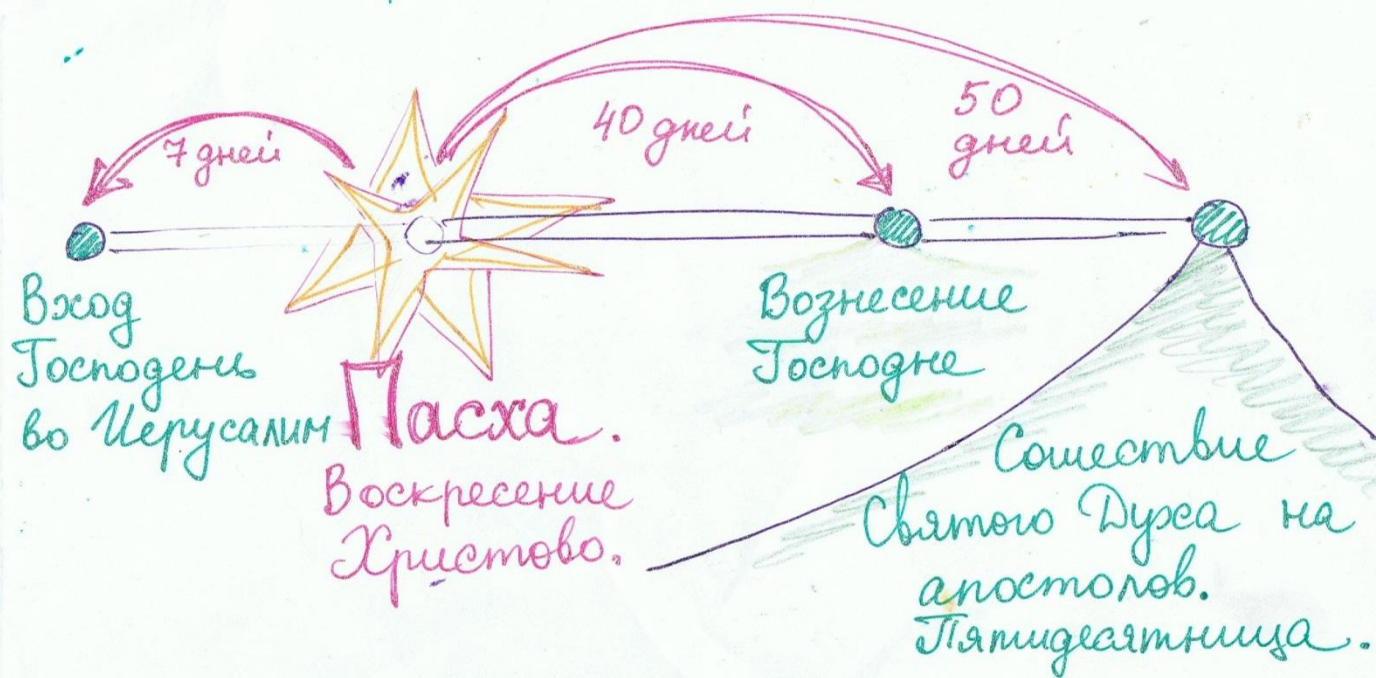 7 дней
40 дней
50
дней
Вход
Господень
во Иерусалим
Пасха.
Воскресение
Христово.
Вознесение
Господне
Сошествие
Святого Духа на
апостолов.
Пятидесятница.